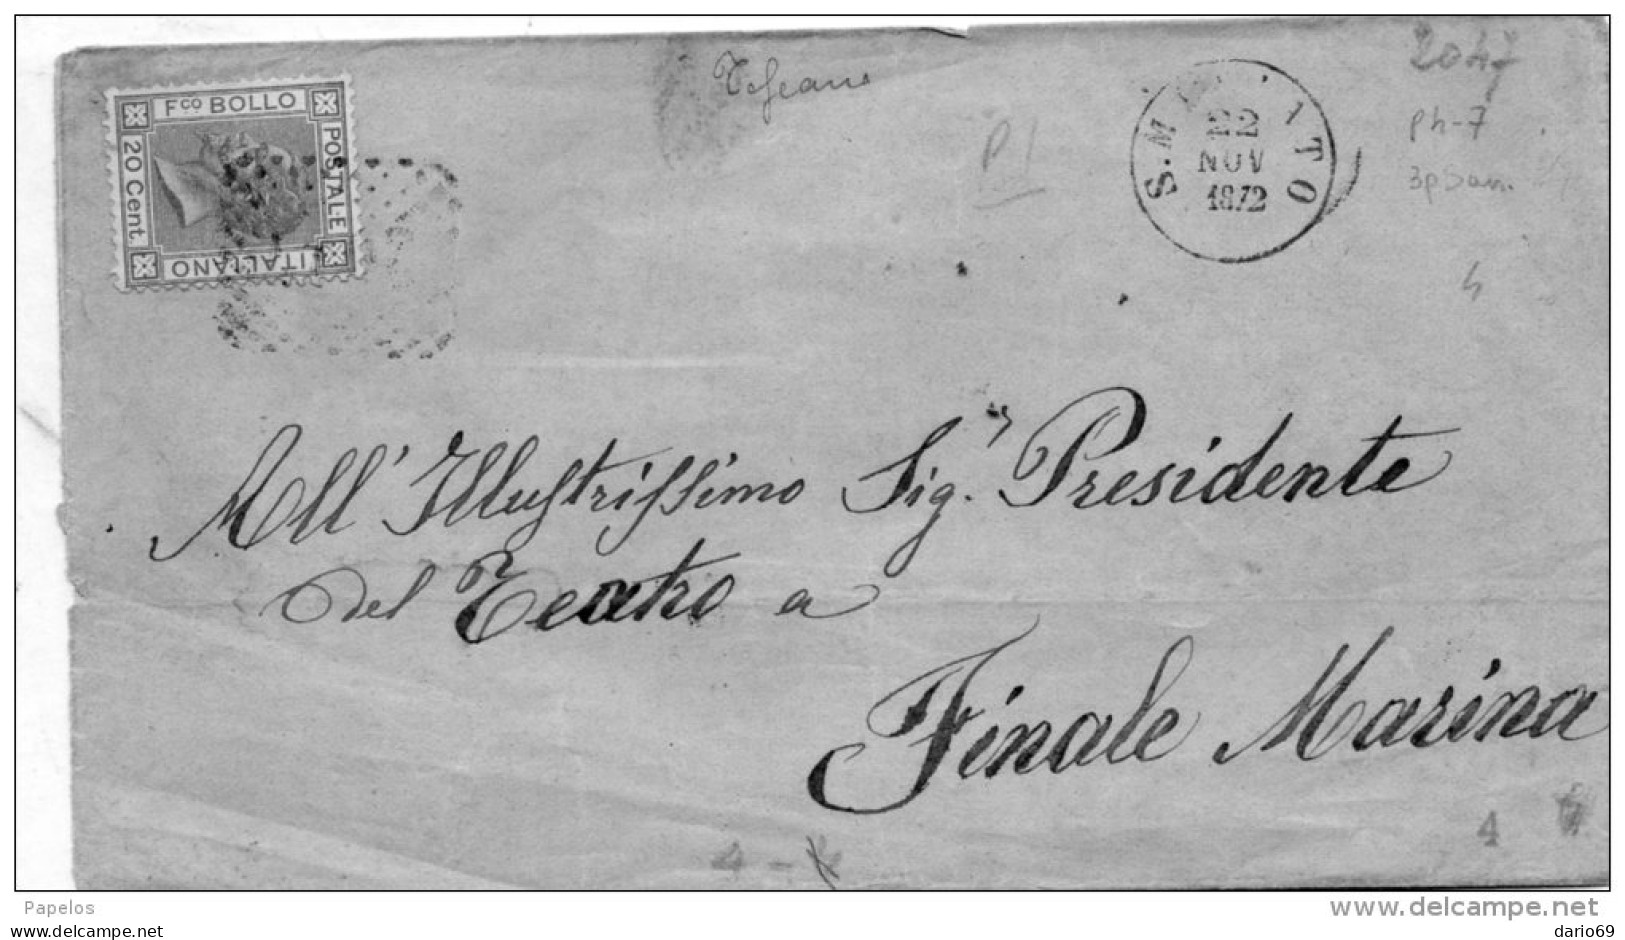 Fco BOLLO
POSTALE
ITALIANO
20 Cent.
22
NOV
1872
2047
ph-7
4
All' Illustrissimo Sig.r Presidente
del Teatro a
Finale Marina
4
4
Papelos
www.delcampe.net
www.delcampe.net
dario69